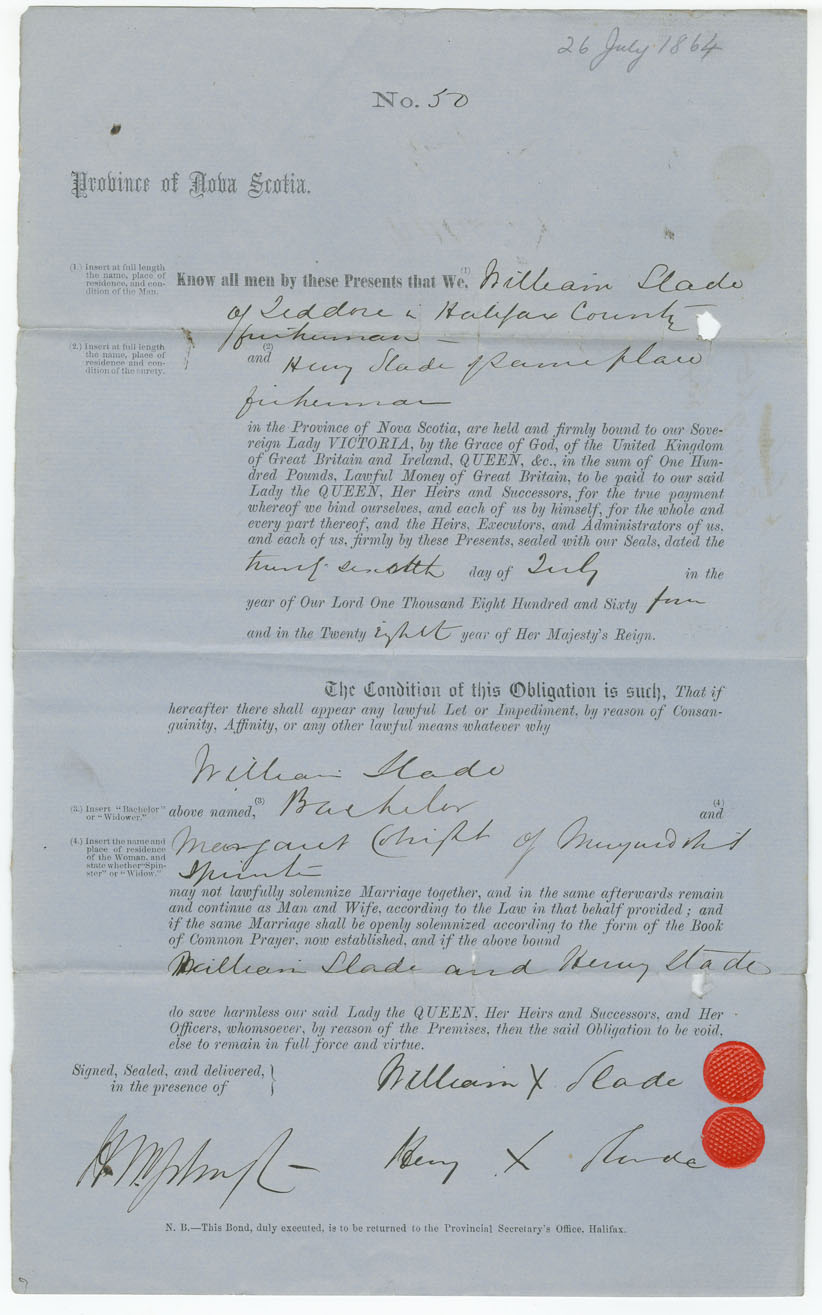 26 July 1864
No. 50
Province of Nova Scotia.
(1.) Insert at full length
the name, place of
residence, and con-
dition of the Man.
Know all men by these Presents that We, (1) William Slade
of Jeddore in Halifax County
fisherman —
(2.) Insert at full length
the name, place of
residence and con-
dition of the surety.
and (2) Henry Slade of same place
fisherman
in the Province of Nova Scotia, are held and firmly bound to our Sove-
reign Lady VICTORIA, by the Grace of God, of the United Kingdom
of Great Britain and Ireland, QUEEN, &c., in the sum of One Hun-
dred Pounds, Lawful Money of Great Britain, to be paid to our said
Lady the QUEEN, Her Heirs and Successors, for the true payment
whereof we bind ourselves, and each of us by himself, for the whole and
every part thereof, and the Heirs, Executors, and Administrators of us,
and each of us, firmly by these Presents, sealed with our Seals, dated the
twenty sixth day of July in the
year of Our Lord One Thousand Eight Hundred and Sixty four
and in the Twenty eighth year of Her Majesty's Reign.
The Condition of this Obligation is such, That if
hereafter there shall appear any lawful Let or Impediment, by reason of Consan-
guinity, Affinity, or any other lawful means whatever why
William Slade
(3.) Insert "Bachelor"
or "Widower."
above named, (3) Bachelor (4) and
(4.) Insert the name and
place of residence
of the Woman, and
state whether "Spin-
ster" or "Widow."
Margaret of
Spinster
may not lawfully solemnize Marriage together, and in the same afterwards remain
and continue as Man and Wife, according to the Law in that behalf provided; and
if the same Marriage shall be openly solemnized according to the form of the Book
of Common Prayer, now established, and if the above bound
William Slade and Henry Slade
do save harmless our said Lady the QUEEN, Her Heirs and Successors, and Her
Officers, whomsoever, by reason of the Premises, then the said Obligation to be void,
else to remain in full force and virtue.
Signed, Sealed, and delivered,
in the presence of
William X Slade
Henry X Slade
N. B.—This Bond, duly executed, is to be returned to the Provincial Secretary's Office, Halifax.